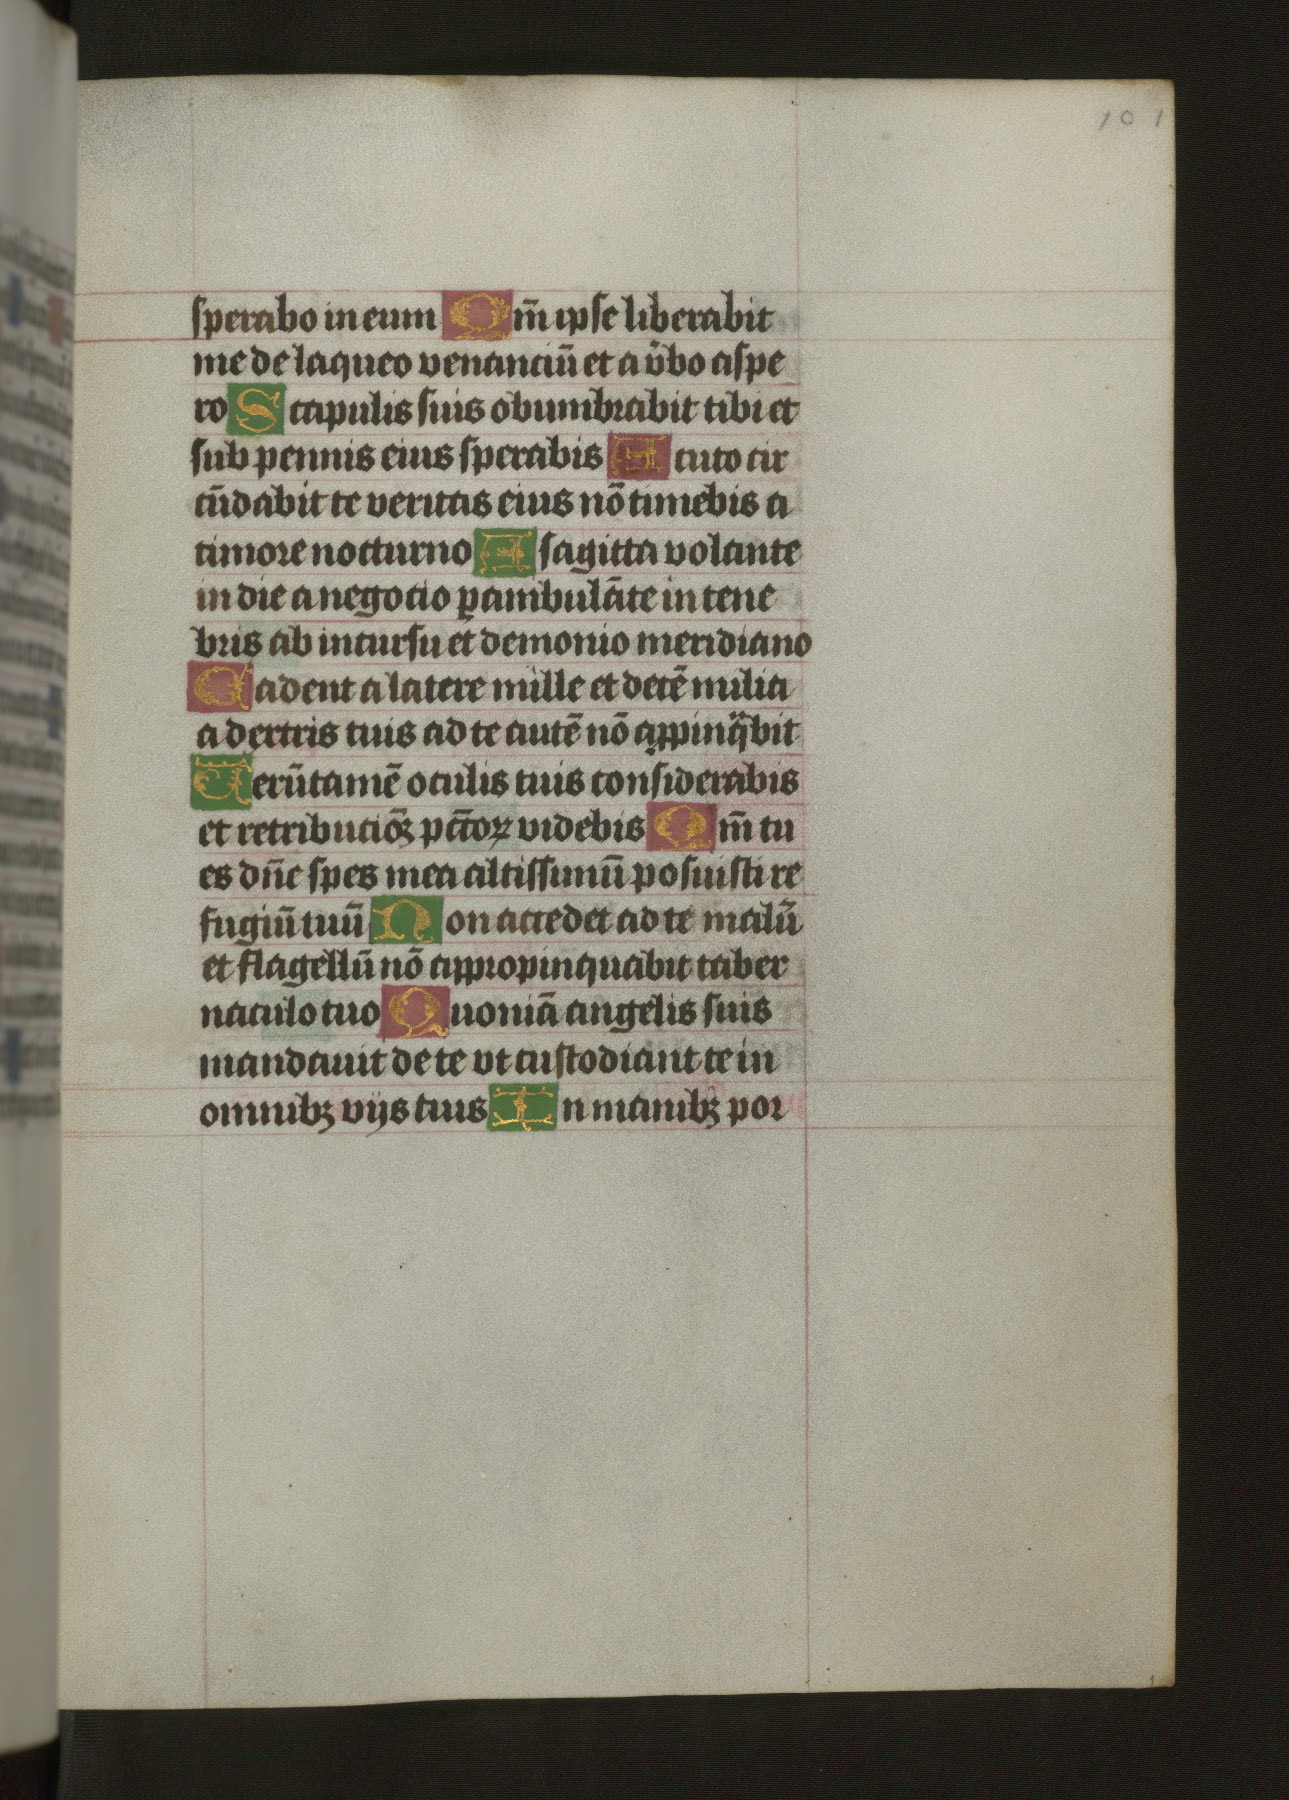 101
sperabo in eum Qm̄ ipse liberabit
me de laqueo venanciū et a v̄bo aspe
ro Scapulis suis obumbrabit tibi et
sub pennis eius sperabis Scuto cir
cūdabit te veritas eius nō timebis a
timore nocturno A sagitta volante
in die a negocio ꝑambulāte in tene
bris ab incursu et demonio meridiano
Cadent a latere mille et decē milia
a dextris tuis ad te autē nō appinqͣbit
Verūtamē oculis tuis considerabis
et retributiōꝫ pctōꝝ videbis Qm̄ tu
es dn̄e spes mea altissimū posuisti re
fugiū tuū Non accedet ad te malū
et flagellū nō appropinquabit taber
naculo tuo Quoniā angelis suis
mandauit de te vt custodiant te in
omnibꝫ vijs tuis In manibꝫ por